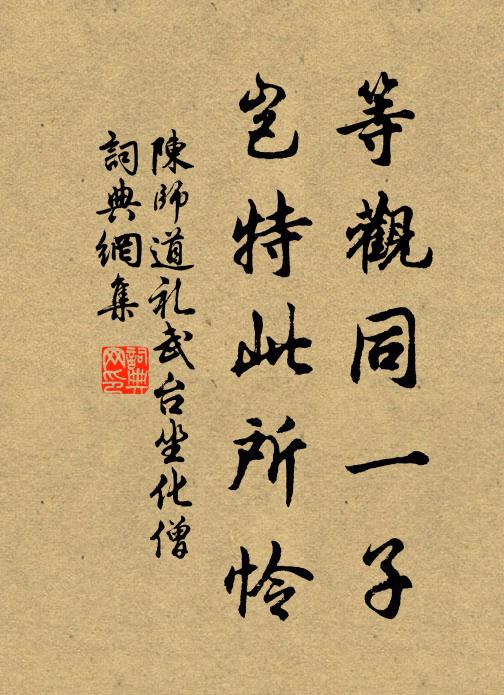 等觀同一子
豈特此所怜
陳師道礼武台坐化僧
詞典網集
詞典網印